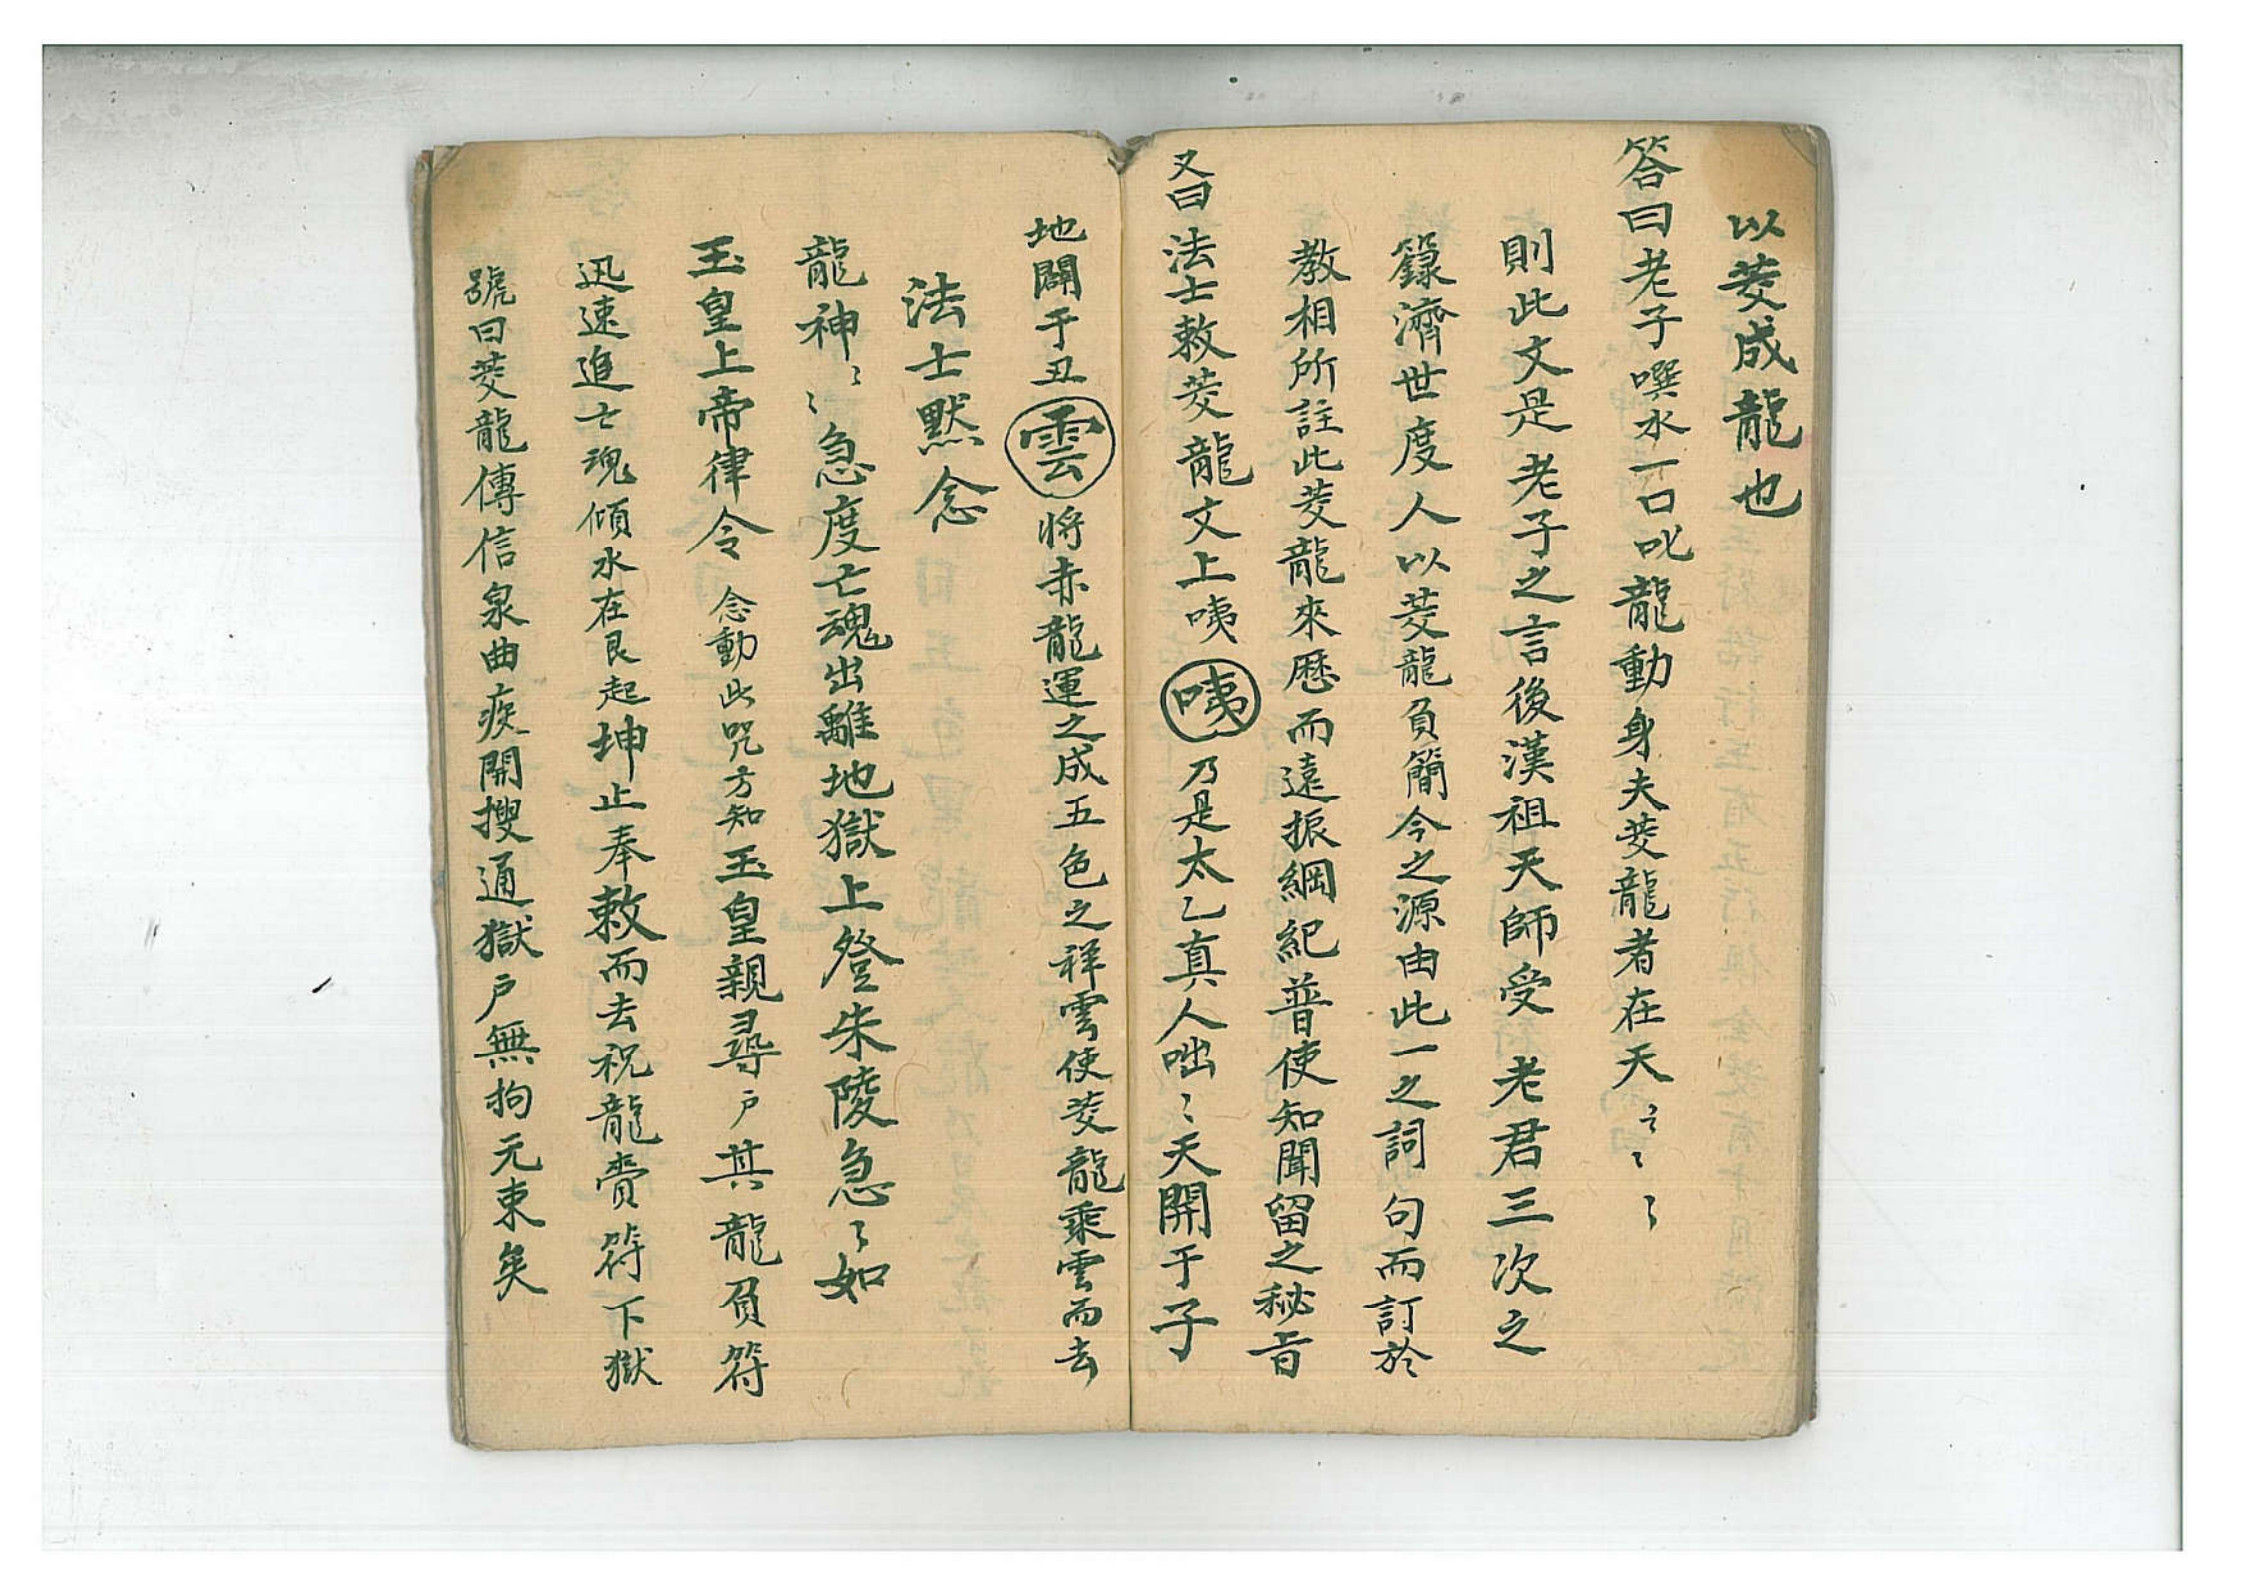 以茭成龍也
答曰老子噀水一口叱龍動身夫茭龍者在天〻〻〻
則此文是老子之言後漢祖天師受 老君三次之
籙濟世度人以茭龍負簡今之源由此一之詞句而訂於
教相所註此茭龍來歷而遠振綱紀普使知聞留之秘旨
又曰法士敕茭龍文上咦 咦 乃是太乙真人咄〻天開于子
地闢于丑 雲 將赤龍運之成五色之祥雲使茭龍乘雲而去
法士默念
龍神〻〻急度亡魂出離地獄上登朱陵急〻如
玉皇上帝律令 念動此咒方知玉皇親尋戶其龍負符
迅速進亡魂傾水在艮起坤止奉敕而去祝龍賫符下獄
號曰茭龍傳信泉曲疾開搜通獄戶無拘元束矣